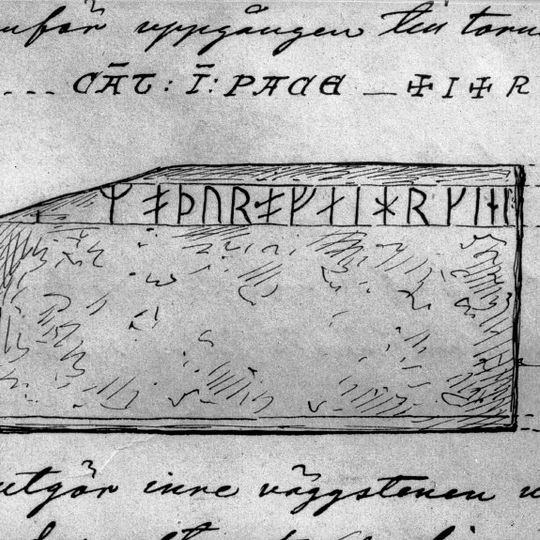 nför uppgången till torn
... CĀT : Ī : PACE — ✠ I ✠ R
ᛉ ᚯᚦᚢᚱᚯᚠᛅᛁᚼᚱᚴᛁᚾᛁ
utgör inre väggstenen